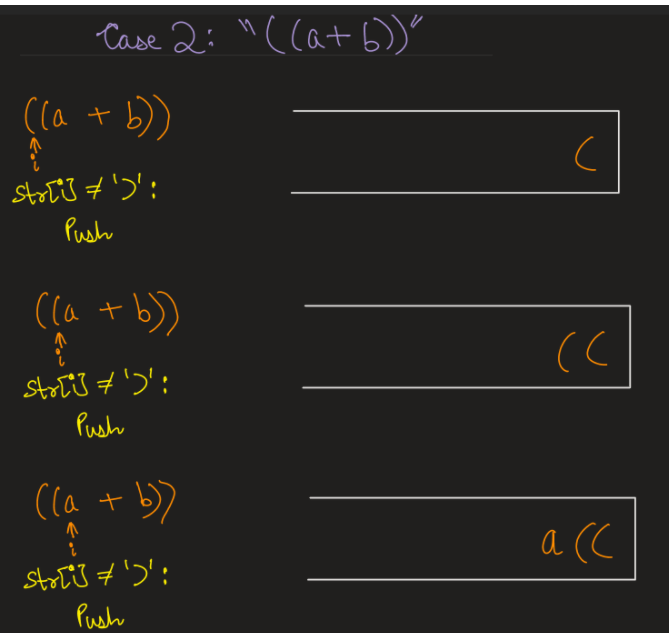 Case 2: "((a+b))"
((a + b))
(
i
str[i] ≠ ')':
Push
((a + b))
((
i
str[i] ≠ ')':
Push
((a + b))
a ((
i
str[i] ≠ ')':
Push